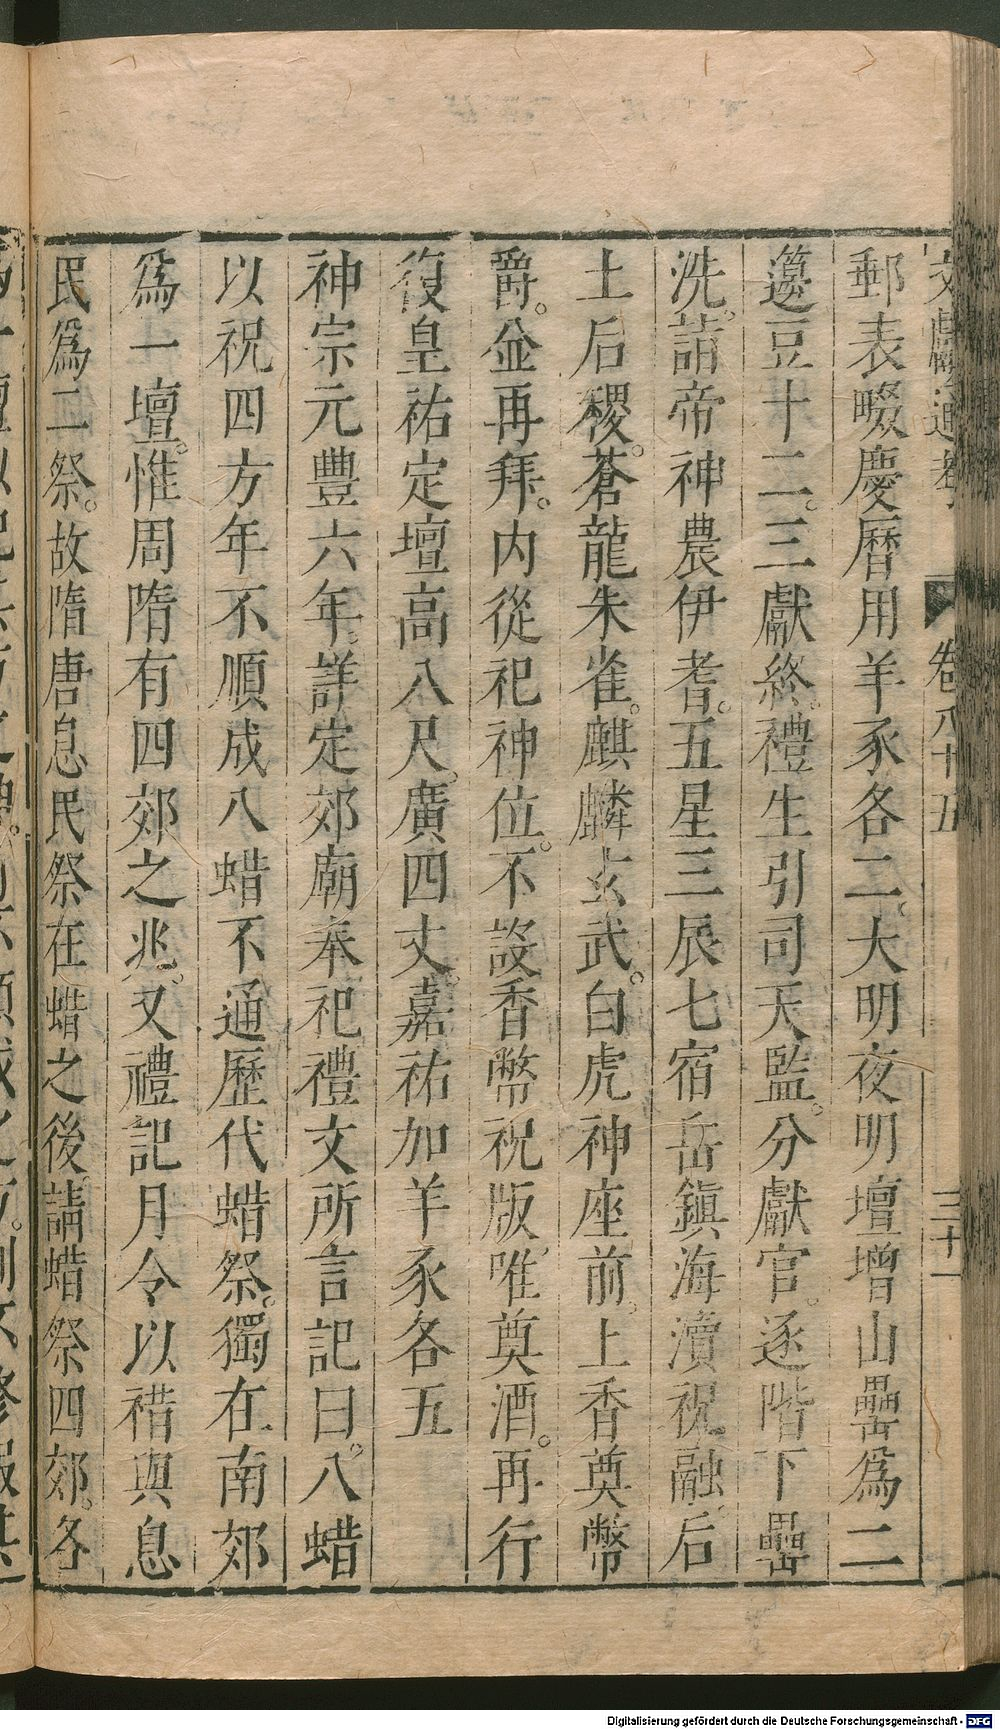 文獻通考 卷八十五 三十一
郵表畷慶曆用羊豕各二大明夜明壇增山罍爲二
籩豆十二三獻終禮生引司天監分獻官逐階下罍
洗詣帝神農伊耆五星三辰七宿岳鎮海瀆祝融后
土后稷蒼龍朱雀麒麟玄武白虎神座前上香奠幣
爵並再拜內從祀神位不設香幣祝版唯奠酒再行
復皇祐定壇高八尺廣四丈嘉祐加羊豕各五
神宗元豐六年詳定郊廟奉祀禮文所言記曰八蜡
以祝四方年不順成八蜡不通歷代蜡祭獨在南郊
爲一壇惟周隋有四郊之兆又禮記月令以䄍與息
民爲二祭故隋唐息民祭在蜡之後請蜡祭四郊各
Digitalisierung gefördert durch die Deutsche Forschungsgemeinschaft - DFG